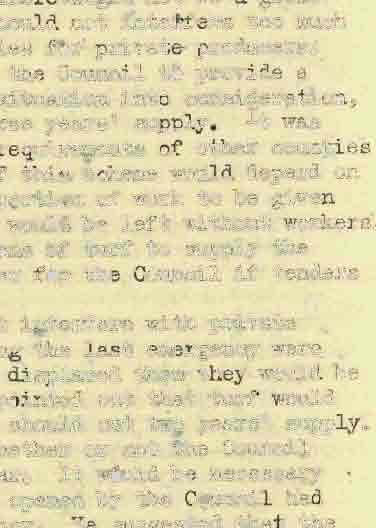 could not interfere too much
for private producers
the Council to provide a
situation into consideration,
years' supply. It was
requirements of other counties
this scheme would depend on
of work to be given
would be left without workers.
of turf to supply the
for the Council if tenders
interfere with private
the last emergency were
displaced then they would be
pointed out that turf would
should cut two years' supply.
whether or not the Council
It would be necessary
opened by the Council had
He suggested that the